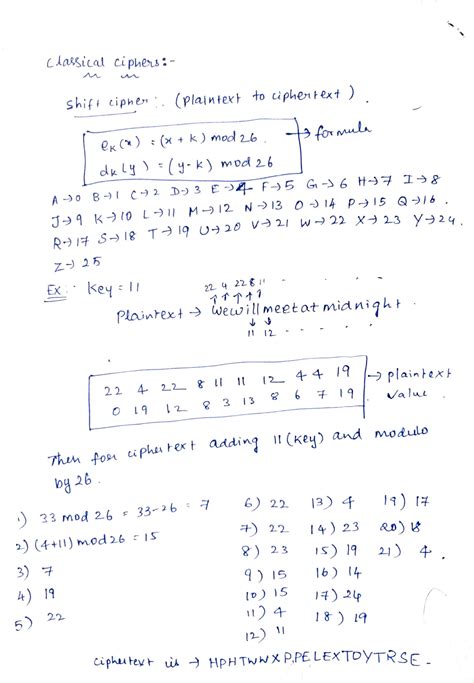 Classical ciphers:-
Shift cipher:. (plaintext to ciphertext).
eK(x) = (x + k) mod 26.
→ formula
dK(y) = (y-k) mod 26
A→0 B→1 C→2 D→3 E→4 F→5 G→6 H→7 I→8
J→9 K→10 L→11 M→12 N→13 O→14 P→15 Q→16.
R→17 S→18 T→19 U→20 V→21 W→22 X→23 Y→24.
Z→25
22 4 22 8 11
Ex:- Key = 11
Plaintext → wewillmeetatmidnight.
11 12
22 4 22 8 11 11 12 4 4 19
0 19 12 8 3 13 8 6 7 19
→ plaintext
value.
Then for ciphertext adding 11(key) and modulo
by 26.
1) 33 mod 26 = 33-26 = 7
2) (4+11) mod 26 = 15
3) 7
4) 19
5) 22
6) 22
7) 22
8) 23
9) 15
10) 15
11) 4
12) 11
13) 4
14) 23
15) 19
16) 14
17) 24
18) 19
19) 17
20) 18
21) 4.
ciphertext is → HPHTWWXPPELEXTOYTRSE.